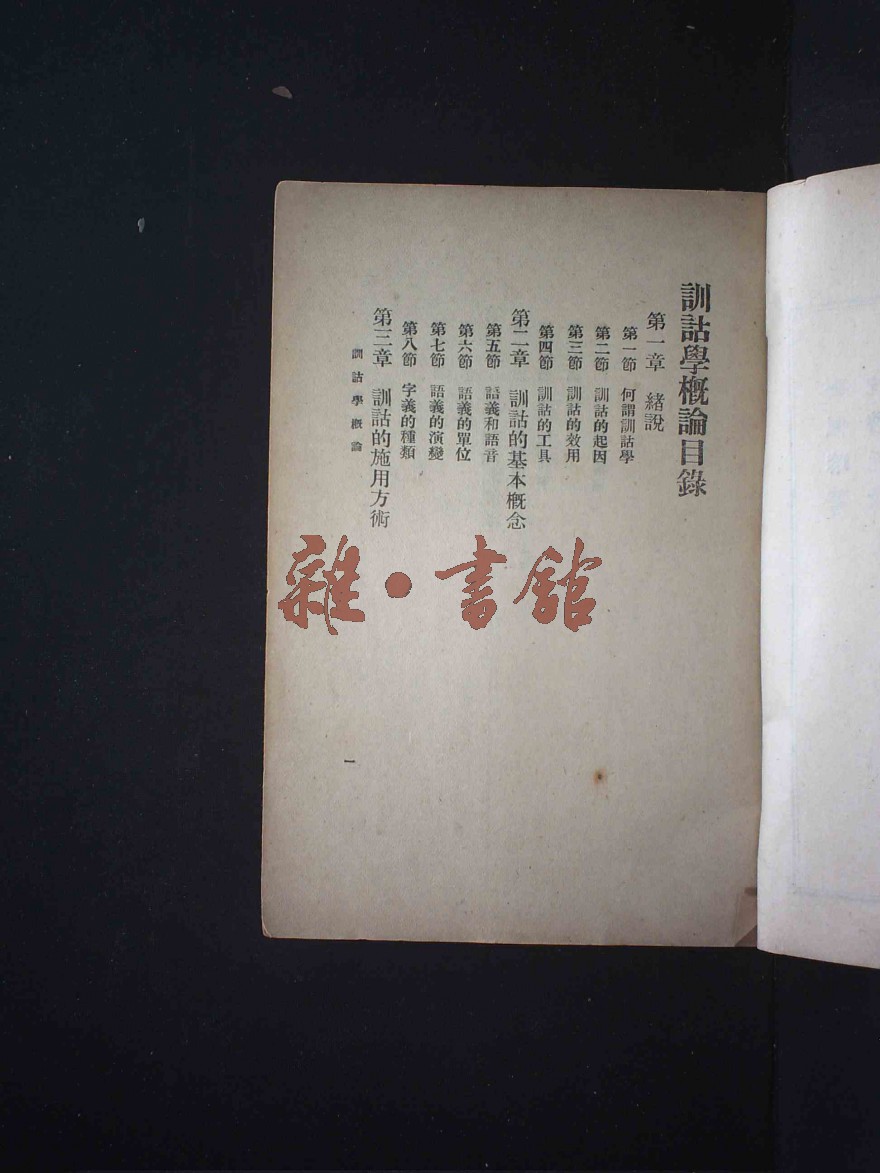 訓詁學概論目錄
第一章　緒說
第一節　何謂訓詁學
第二節　訓詁的起因
第三節　訓詁的效用
第四節　訓詁的工具
第二章　訓詁的基本概念
第五節　語義和語音
第六節　語義的單位
第七節　語義的演變
第八節　字義的種類
第三章　訓詁的施用方術
訓詁學概論
一
雜・書館